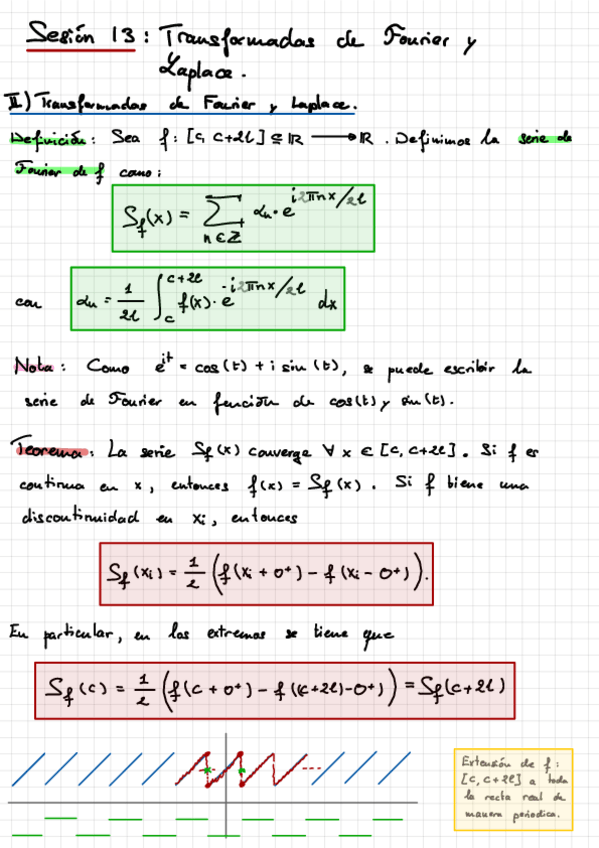 Sesión 13: Transformadas de Fourier y
Laplace.
II) Transformadas de Fourier y Laplace.
Definición: Sea f: [c, c+2l] ⊆ ℝ ⟶ ℝ. Definimos la serie de
Fourier de f como:
S_f(x) = ∑_{n∈ℤ} α_n · e^{i2πnx/2l}
con α_n = 1/2l ∫_c^{c+2l} f(x) · e^{-i2πnx/2l} dx
Nota: Como e^{it} = cos(t) + i sin(t), se puede escribir la
serie de Fourier en función de cos(t) y sin(t).
Teorema: La serie S_f(x) converge ∀ x ∈ [c, c+2l]. Si f es
continua en x, entonces f(x) = S_f(x). Si f tiene una
discontinuidad en x_i, entonces
S_f(x_i) = 1/2 (f(x_i + 0⁺) - f(x_i - 0⁺)).
En particular, en los extremos se tiene que
S_f(c) = 1/2 (f(c + 0⁺) - f((c+2l) - 0⁺)) = S_f(c+2l)
Extensión de f:
[c, c+2l] a toda
la recta real de
manera periodica.